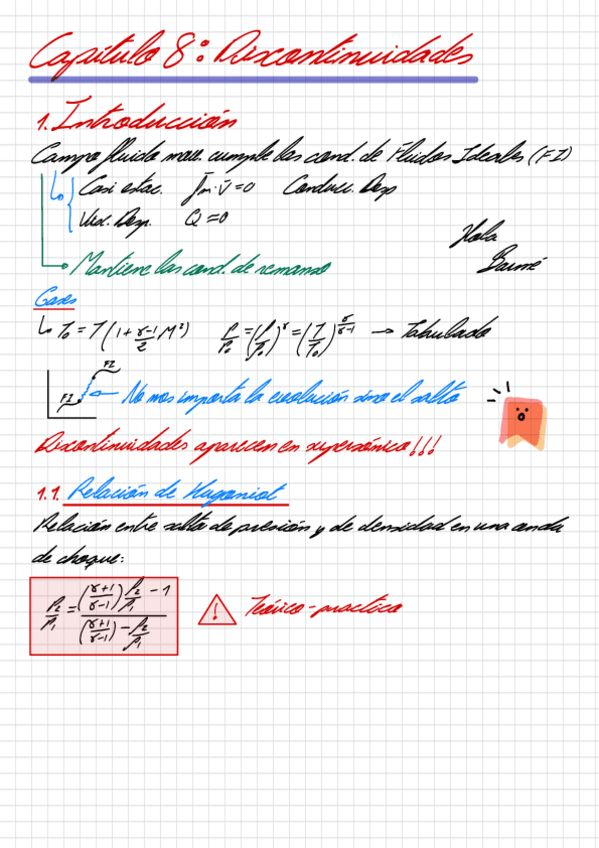 Capítulo 8: Discontinuidades
1. Introducción
Campo fluido mov. cumple las cond. de Fluidos Ideales (FI)
Casi estac. f̄m·v̄=0 Conducc. Desp
Visc. Desp. Q=0
Hola
Mantiene las cond. de remanso
Gases
T₀ = T(1+γ-1/2 M²) P/P₀ = (ρ/ρ₀)^γ = (T/T₀)^γ/γ-1 → Tabulado
FI
FI
No nos importa la evolución sino el salto
Discontinuidades aparecen en supersónico!!!
1.1. Relación de Hugoniot
Relación entre salto de presión y de densidad en una onda
de choque:
P₂/P₁ = ((γ+1/γ-1) ρ₂/ρ₁ - 1)/((γ+1/γ-1) - ρ₂/ρ₁)
! Teórico-practico